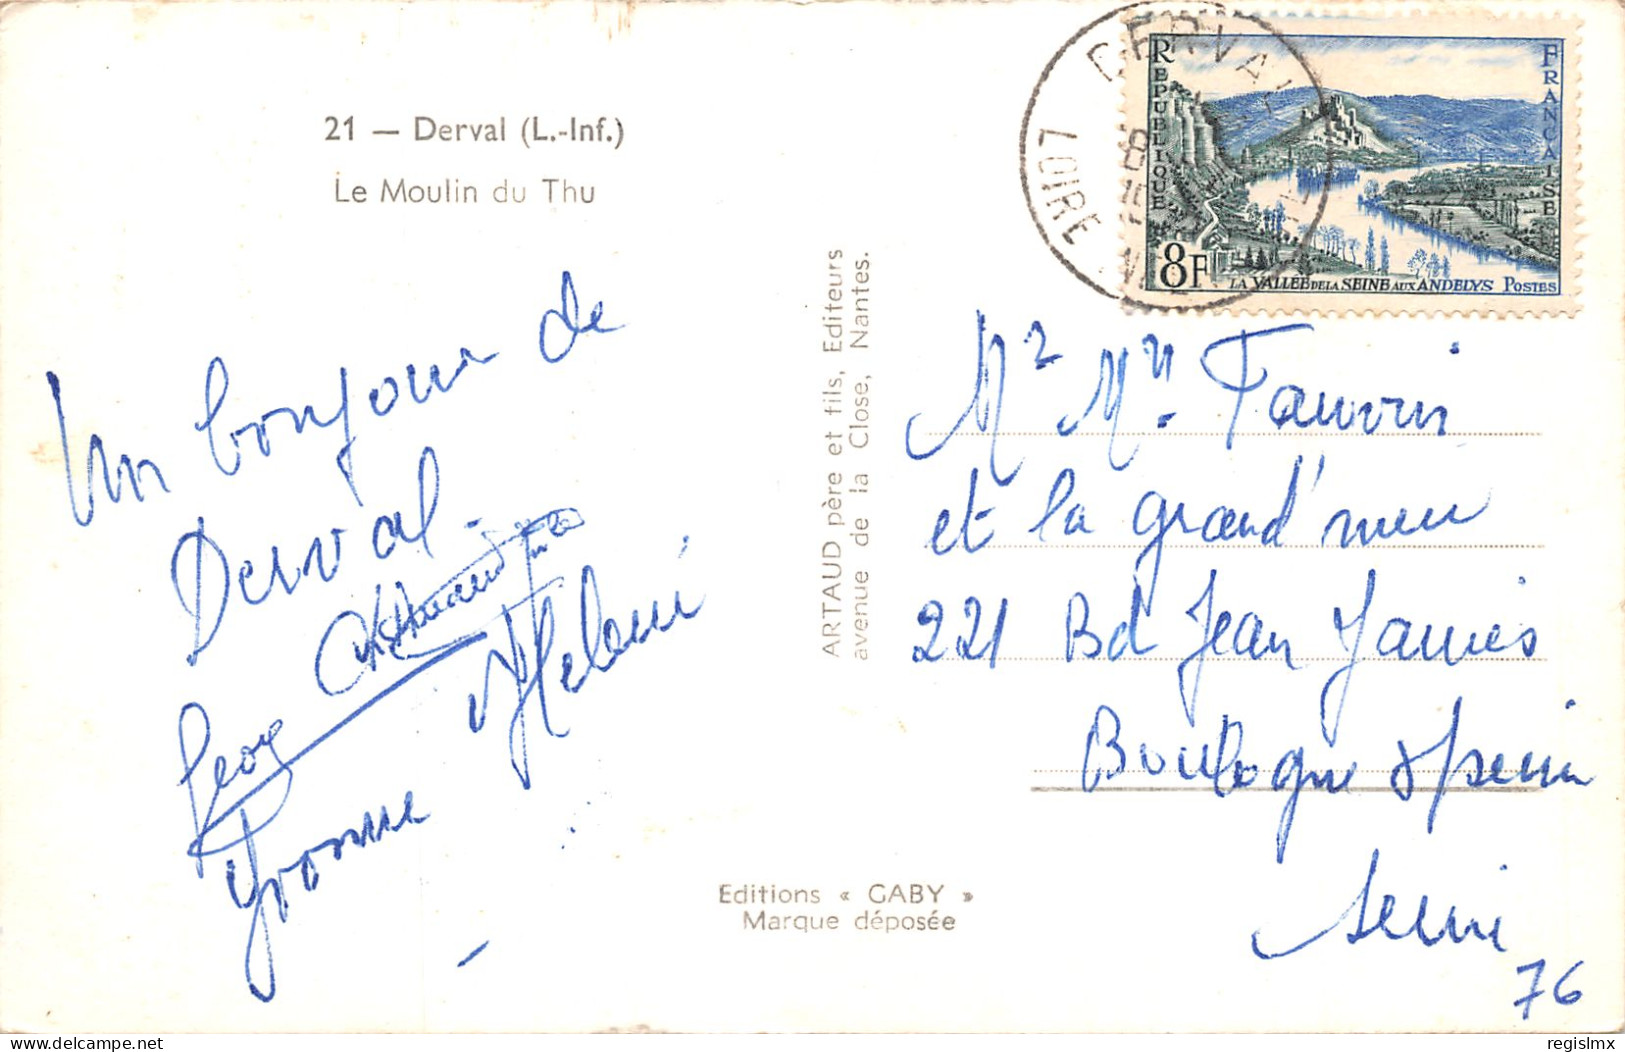 21 — Derval (L.-Inf.)
Le Moulin du Thu
Un bonjour de
Derval.
Helini
Yvonne
ARTAUD père et fils, Editeurs
avenue de la Close, Nantes.
Editions « GABY »
Marque déposée
DERVAL
LOIRE
RÉPUBLIQUE
FRANÇAISE
8F
LA VALLÉE DE LA SEINE AUX ANDELYS POSTES
Mr Mn. Fauvin
et la grand'mere
221 Bd Jean Jaures
Boulogne s/seine
seine
76
Delcampe.net
regislmx